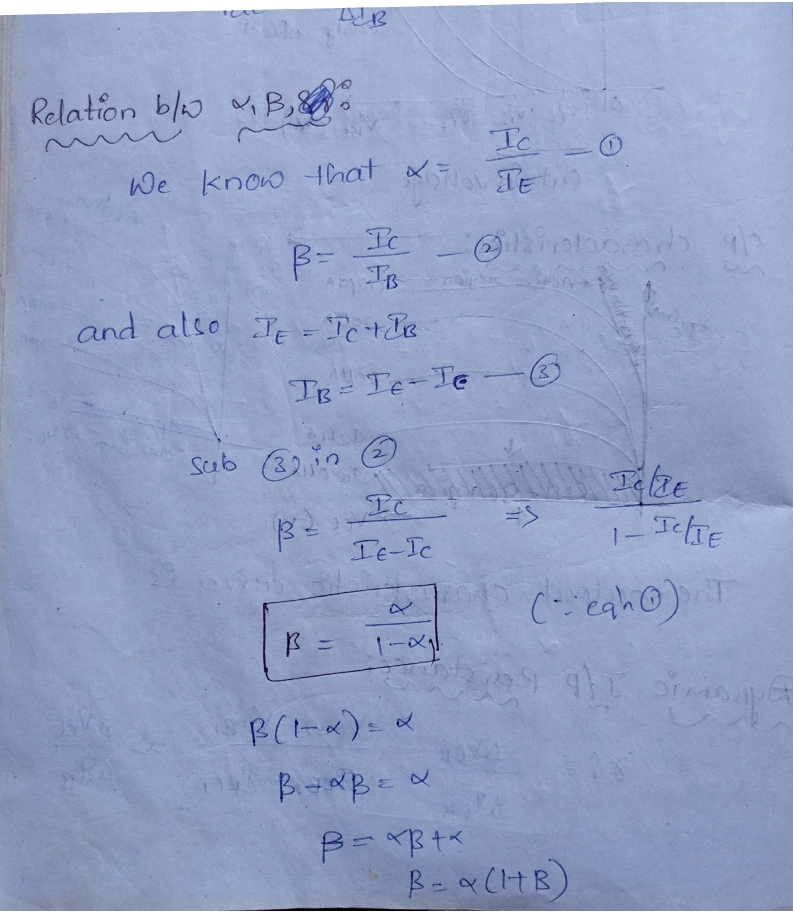 ΔIB
Relation b/w α, β, & :
We know that α = IC/IE — ①
β = IC/IB — ②
and also IE = IC + IB
IB = IE - IE — ③
sub ③ in ②
β = IC/(IE-IC) => (IC/IE)/(1 - IC/IE)
β = α/(1-α) (∵ eqn ①)
β(1-α) = α
β - αβ = α
β = αβ + α
β = α(1+β)